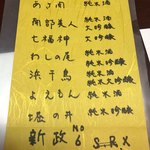 あさ開 純米酒
南部美人 大吟醸
七福神 純米酒
わしの尾 純米吟醸
浜千鳥 純米大吟醸
よえもん 純米酒
堀の井 純米吟醸
新政 NO6 S R X